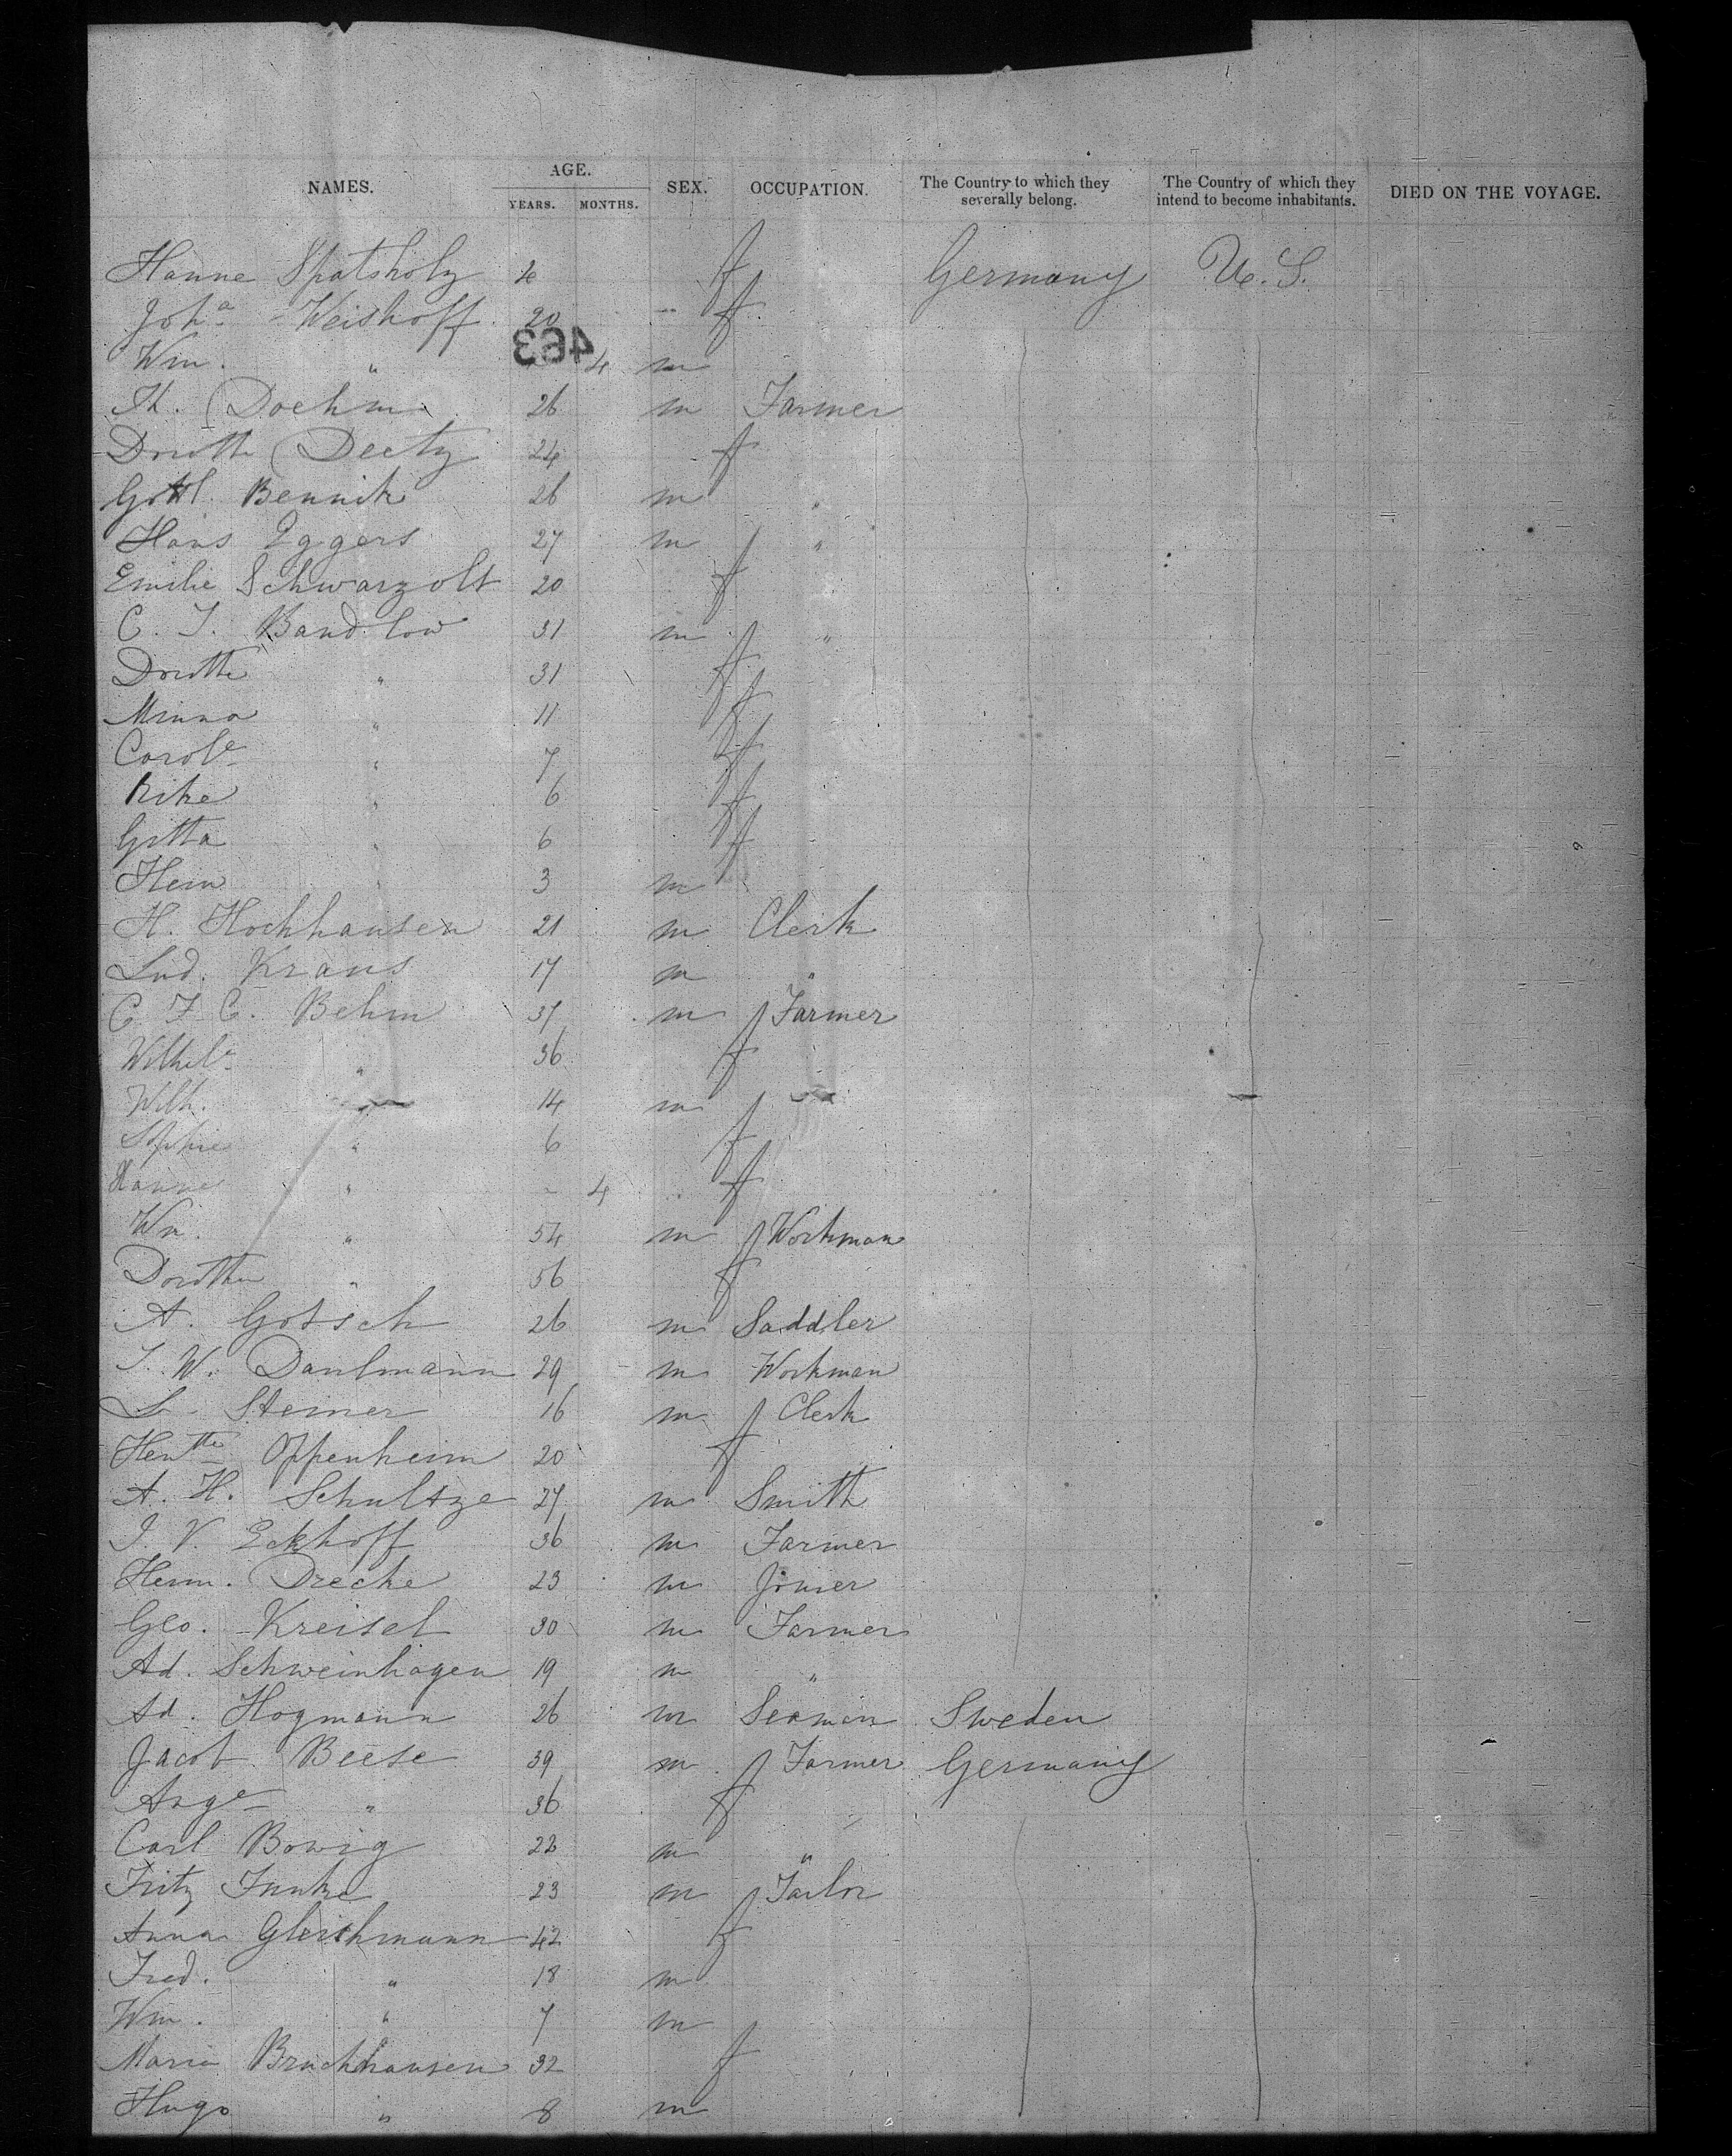 NAMES. AGE. YEARS. MONTHS. SEX. OCCUPATION. The Country to which they severally belong. The Country of which they intend to become inhabitants. DIED ON THE VOYAGE.
Hanne Spatsholz 4 f Germany U.S.
Joha Weishoff 20 f
463
Wm. " 4 m
Th. Doehm 26 m Farmer
Doroth Deetz 24 f
Gottl. Bennik 26 m "
Hans Eggers 27 m "
Emilie Schwarzolt 20 f
C. J. Bandlow 31 m "
Doroth " 31 f
Minna " 11 f
Carole " 7 f
Rike " 6 f
Gitta " 6 f
Hein " 3 m
H. Hochhausen 21 m Clerk
Lud. Kraus 17 m "
C. F. C. Behm 37 m Farmer
Wilhele " 36 f
Wilh. " 14 m
Sophie " 6 f
Hanne " - 4 f
Wm. " 54 m Workman
Dorothe " 56 f
A. Gotsch 26 m Saddler
J. W. Danlmann 29 m Workman
L. Steiner 16 m Clerk
Hentte Oppenheim 20 f
A. H. Schultze 27 m Smith
J. V. Eckhoff 36 m Farmer
Herm. Drecke 23 m Joiner
Geo. Kreisel 30 m Farmer
Ad. Schweinhagen 19 m "
Ad. Hogmann 26 m Seaman Sweden
Jacob Beese 39 m Farmer Germany
Ange " 36 f
Carl Bowig 22 m "
Fritz Funke 23 m Tailor
Anna Gleichmann 42 f
Fred. " 18 m
Wm. " 7 m
Maria Bruchhausen 32 f
Hugo " 8 m